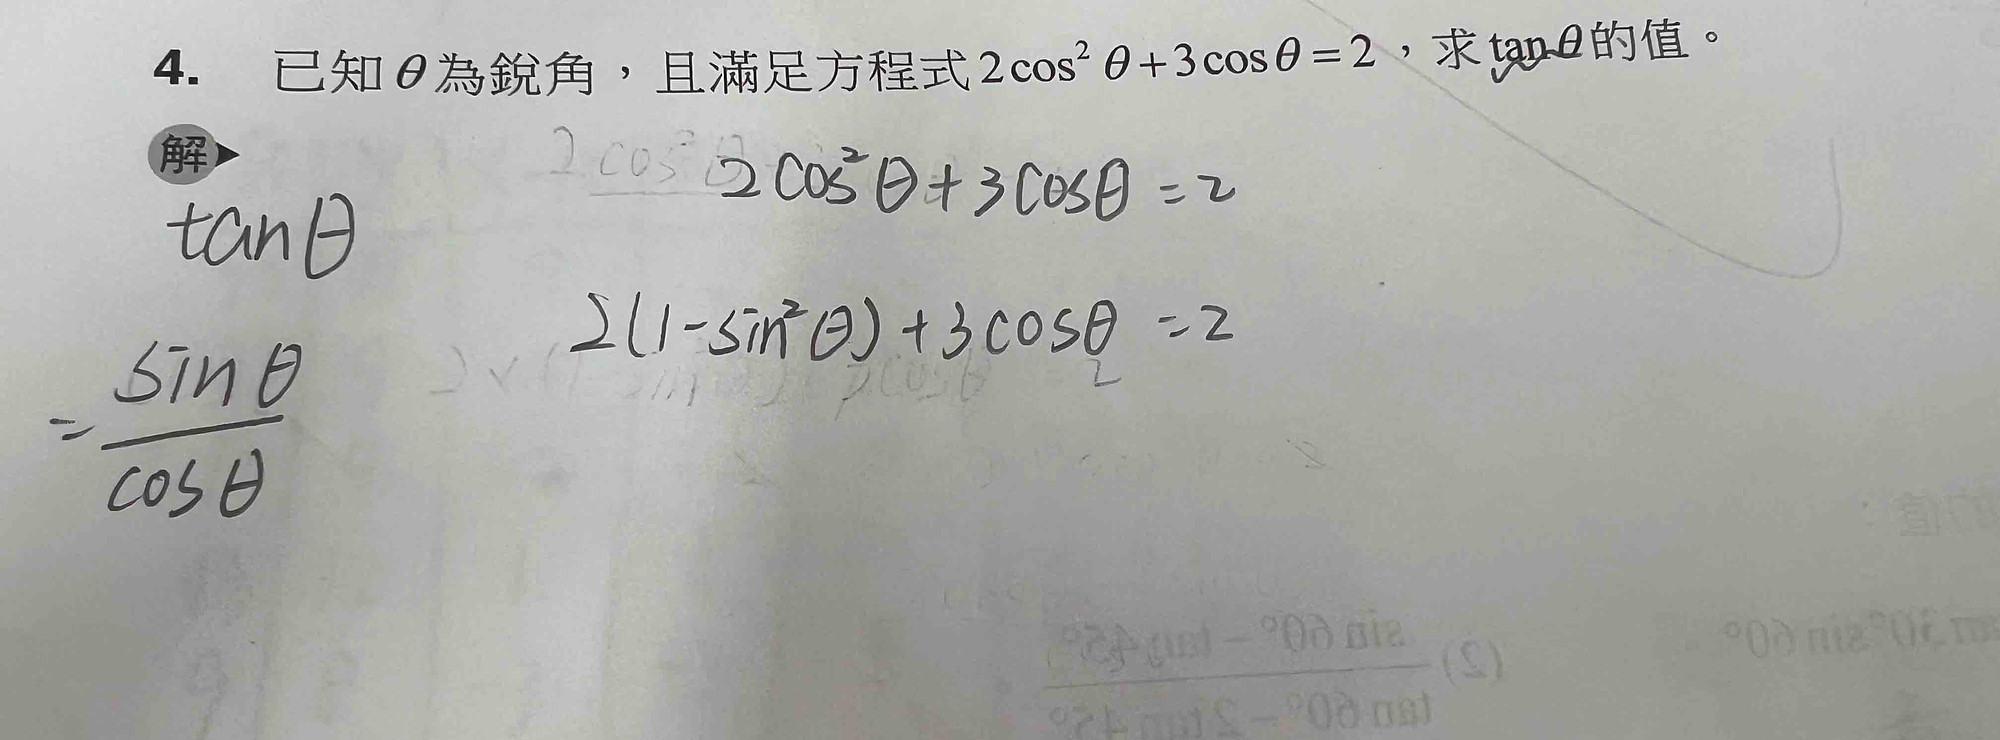 4. 已知θ為銳角，且滿足方程式2cos² θ+3cosθ=2，求tanθ的值。
解
2cos²θ+3cosθ=2
tanθ
2(1-sin²θ)+3cosθ=2
=sinθ/cosθ